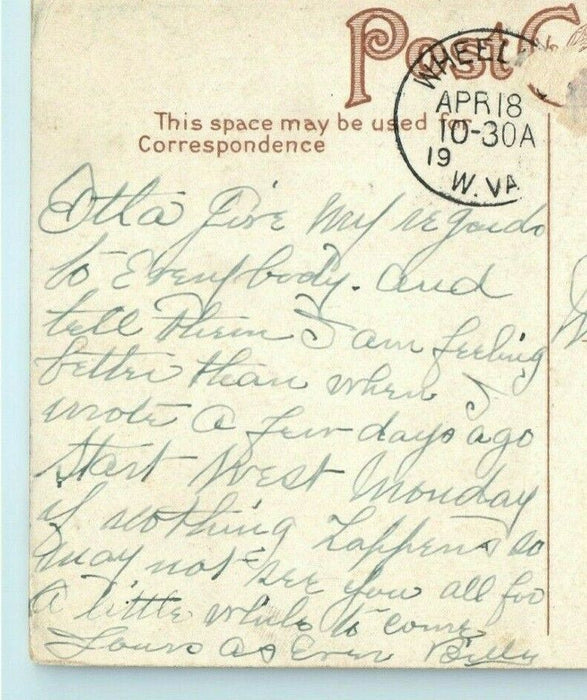 Post C
WHEEL
APR 18
10-30A
19
W. VA
This space may be used for
Correspondence
Otta Give my regards
to Everybody. and
tell them I am feeling
better than when I
wrote a few days ago
start West Monday
if nothing happens so
may not see you all for
a little while to come
Yours as Ever Billy